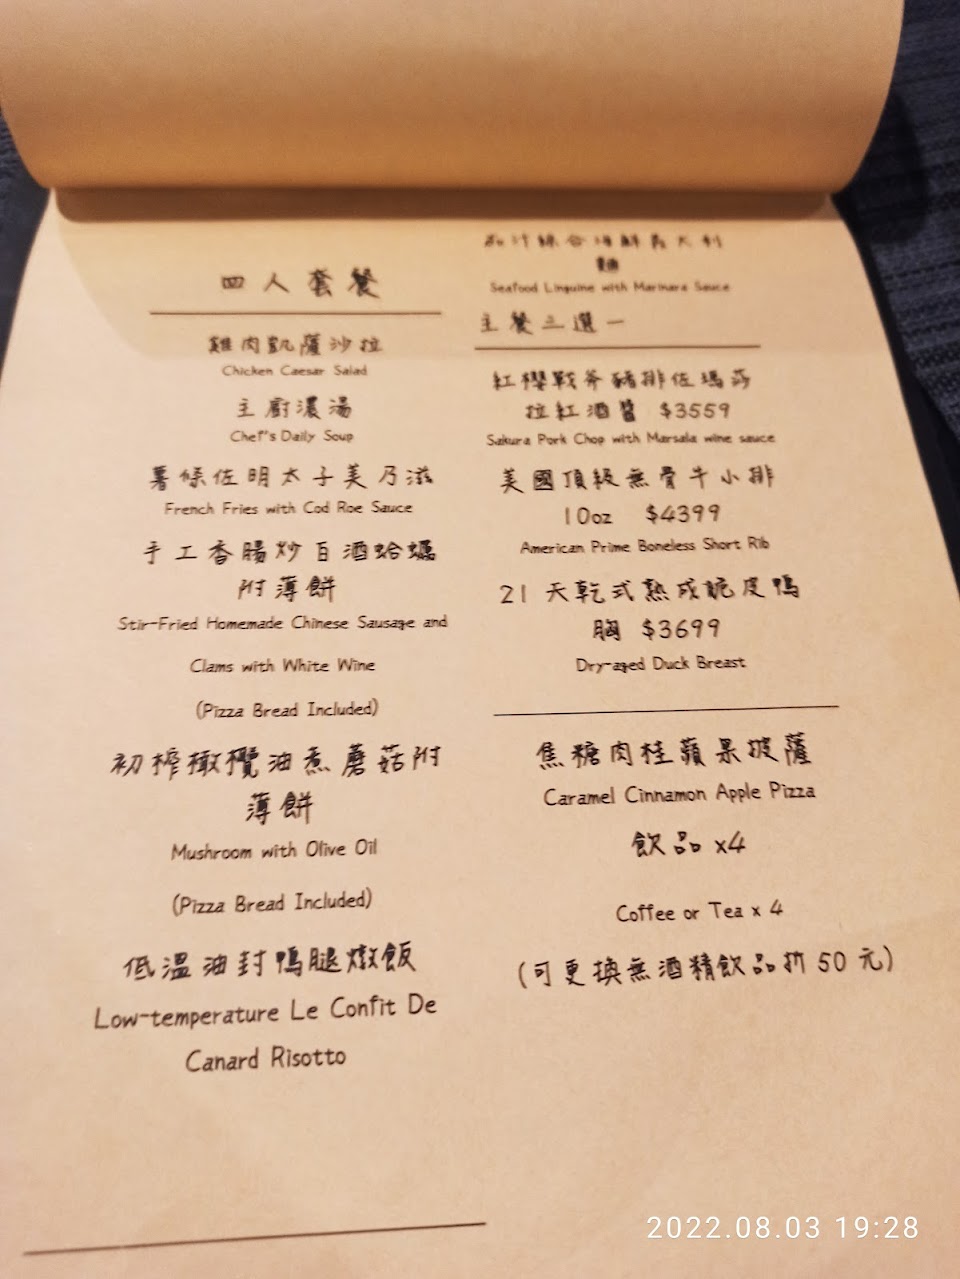 四人套餐
雞肉凱薩沙拉
Chicken Caesar Salad
主廚濃湯
Chef's Daily Soup
薯條佐明太子美乃滋
French Fries with Cod Roe Sauce
手工香腸炒白酒蛤蠣
附薄餅
Stir-Fried Homemade Chinese Sausage and
Clams with White Wine
(Pizza Bread Included)
初榨橄欖油煮蘑菇附
薄餅
Mushroom with Olive Oil
(Pizza Bread Included)
低溫油封鴨腿燉飯
Low-temperature Le Confit De
Canard Risotto
茄汁綜合海鮮義大利
麵
Seafood Linguine with Marinara Sauce
主餐三選一
紅櫻戰斧豬排佐瑪莎
拉紅酒醬 $3559
Sakura Pork Chop with Marsala wine sauce
美國頂級無骨牛小排
10oz $4399
American Prime Boneless Short Rib
21 天乾式熟成脆皮鴨
胸 $3699
Dry-aged Duck Breast
焦糖肉桂蘋果披薩
Caramel Cinnamon Apple Pizza
飲品 x4
Coffee or Tea x 4
(可更換無酒精飲品折 50 元)
2022.08.03 19:28